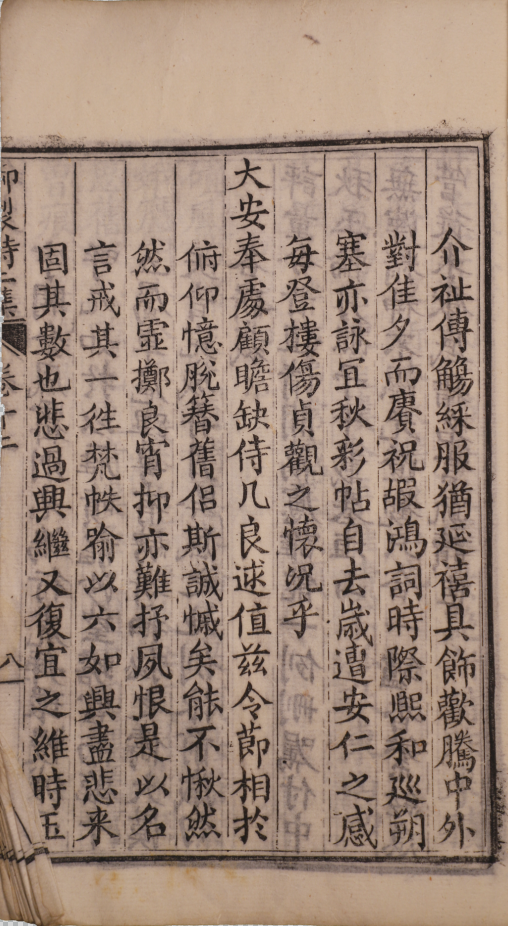 介祉傳觴綵服猶延禧具飾歡騰中外
對佳夕而賡祝嘏鴻詞時際熙和巡朔
塞亦詠冝秋彩帖自去歲遭安仁之感
每登樓傷貞觀之懷况乎
大安奉處顧瞻缺侍几良逑值兹令節相於
俯仰憶脫簪舊侶斯誠慽矣能不愀然
然而虛擲良宵抑亦難抒夙恨是以名
言戒其一徃梵帙喻以六如興盡悲来
固其數也悲過興繼又復宜之維時玉
御製詩二集
卷十二
八